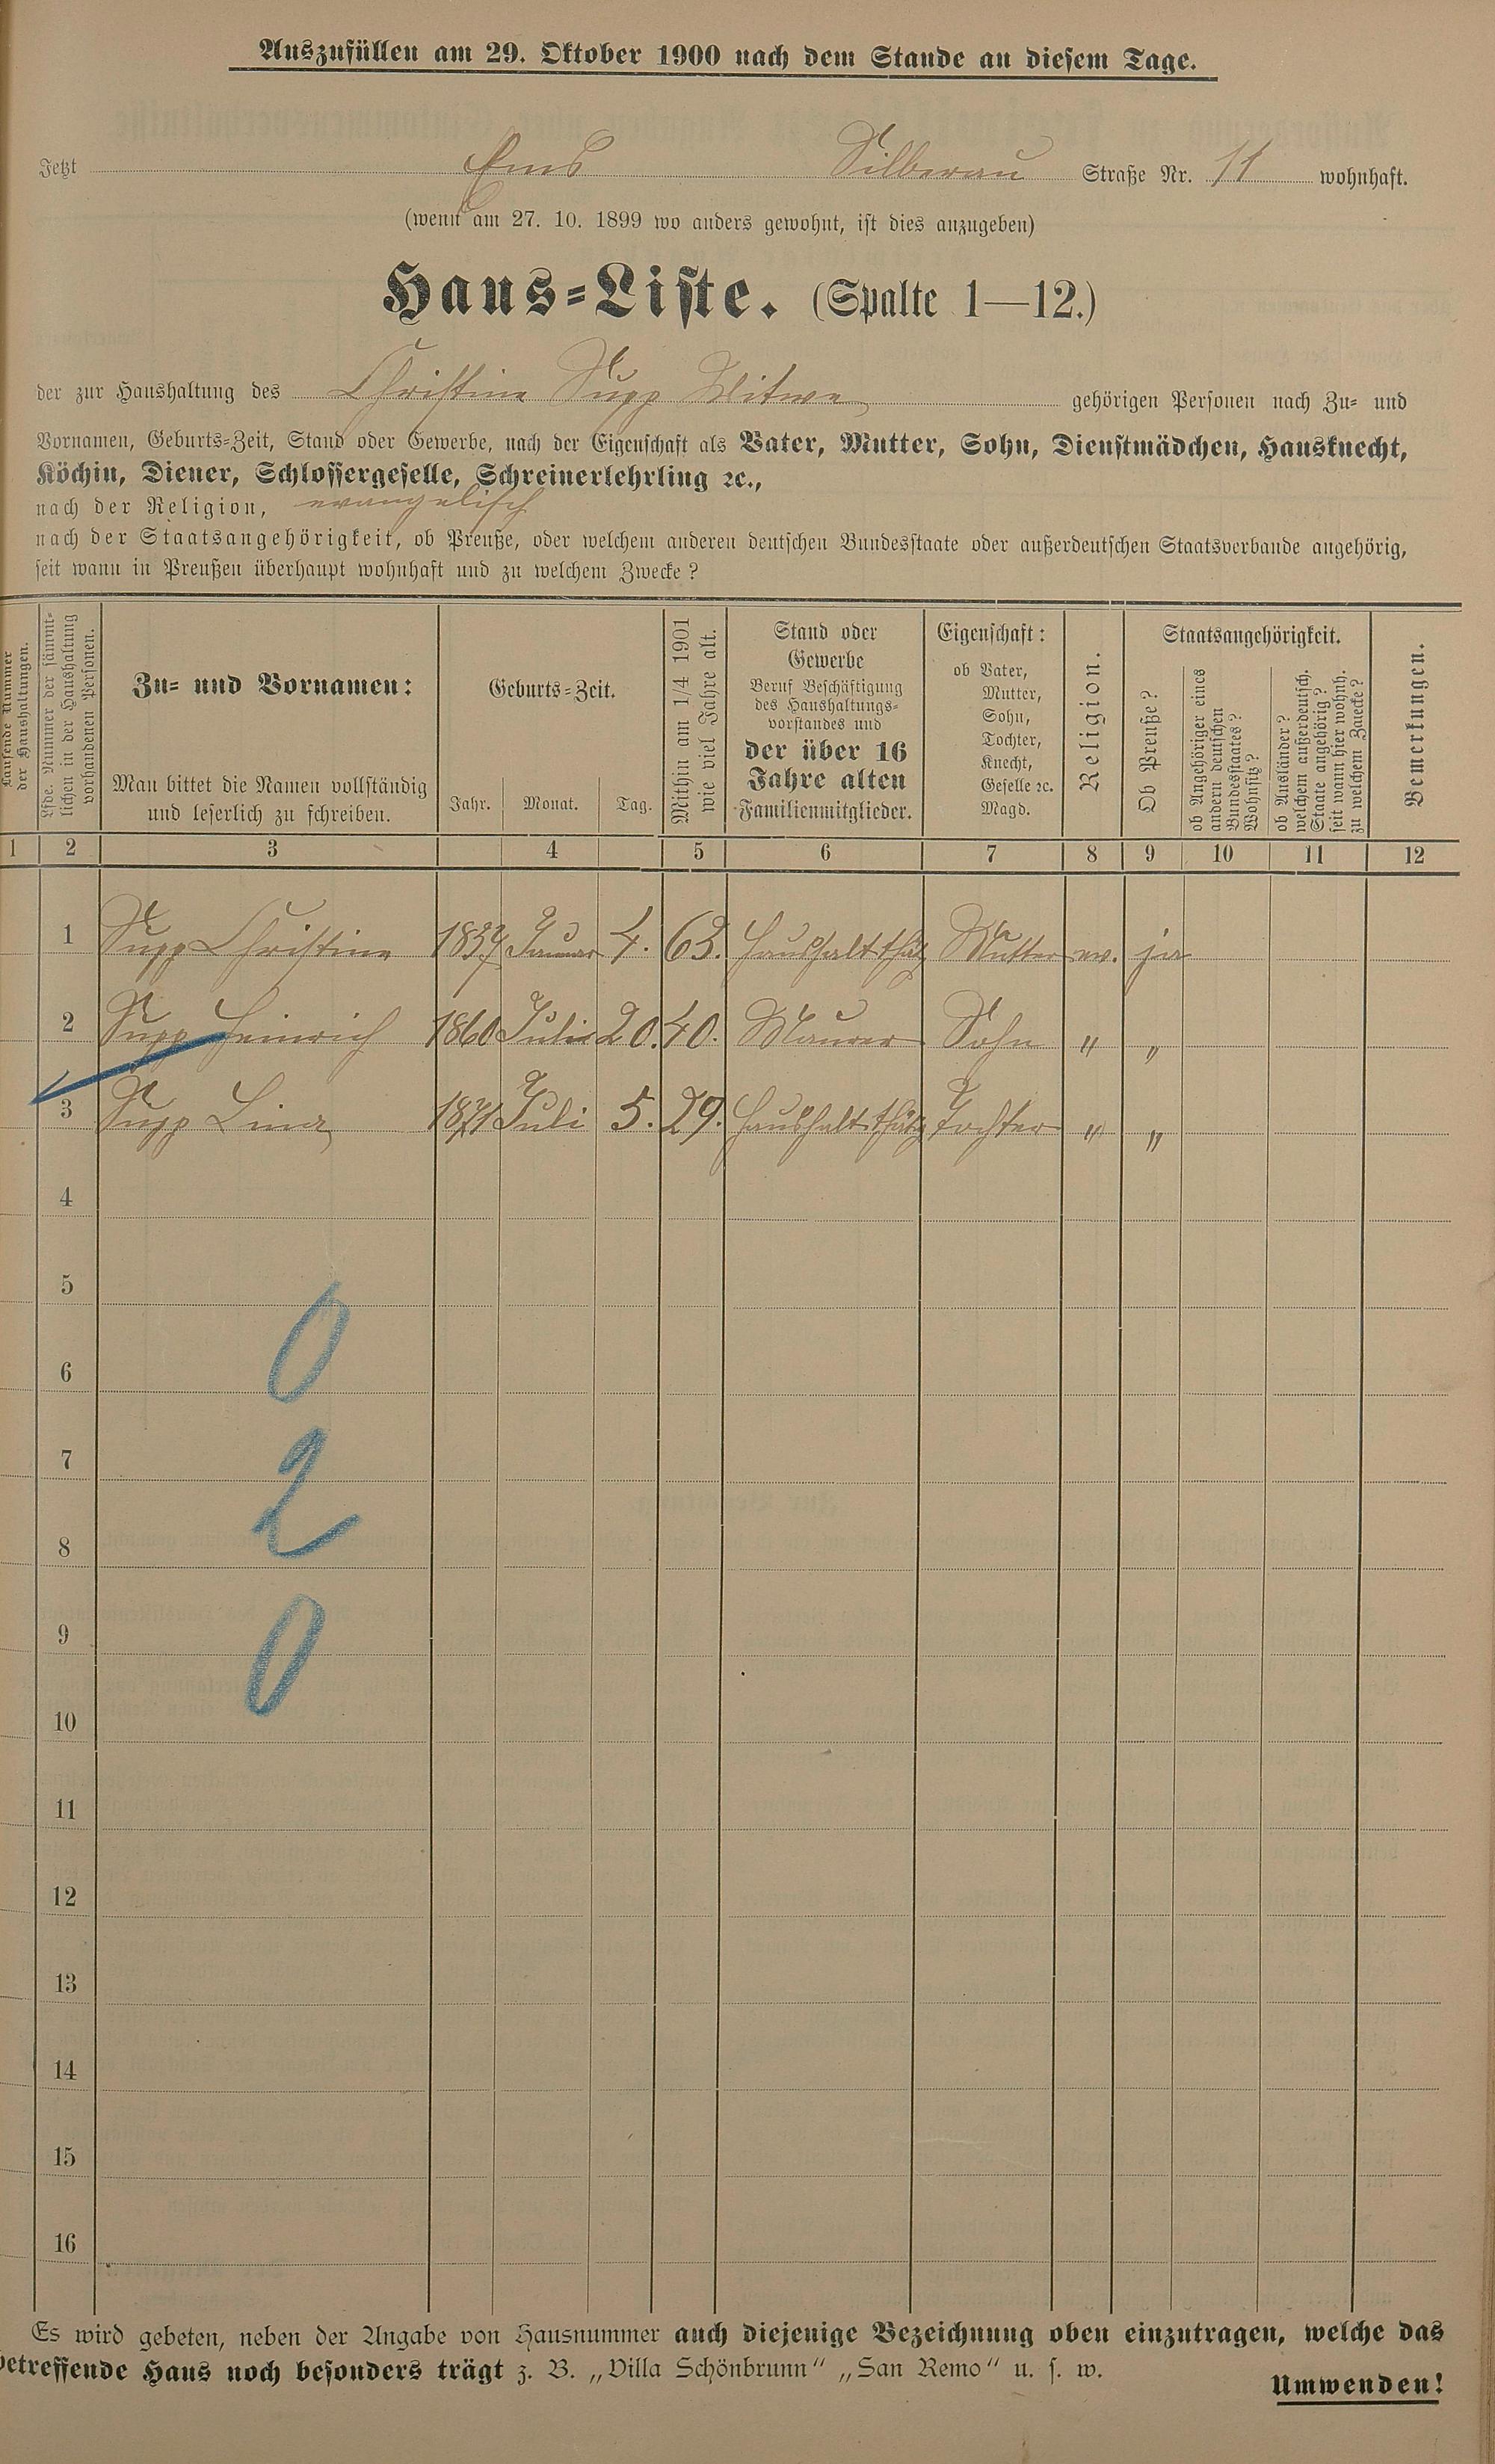 Auszufüllen am 29. Oktober 1900 nach dem Stande an diesem Tage.
Jetzt Ems Silberau Straße Nr. 11 wohnhaft.
(wenn am 27. 10. 1899 wo anders gewohnt, ist dies anzugeben)
Haus-Liste. (Spalte 1—12.)
der zur Haushaltung des Christine Supp Witwe gehörigen Personen nach Zu- und
Vornamen, Geburts-Zeit, Stand oder Gewerbe, nach der Eigenschaft als Vater, Mutter, Sohn, Dienstmädchen, Hausknecht,
Köchin, Diener, Schlossergeselle, Schreinerlehrling ꝛc.,
nach der Religion, evangelisch
nach der Staatsangehörigkeit, ob Preuße, oder welchem anderen deutschen Bundesstaate oder außerdeutschen Staatsverbande angehörig,
seit wann in Preußen überhaupt wohnhaft und zu welchem Zwecke?
Laufende Nummer
der Haushaltungen.
Lfde. Nummer der sämmt-
lichen in der Haushaltung
vorhandenen Personen.
Zu- und Vornamen:
Man bittet die Namen vollständig
und leserlich zu schreiben.
Geburts-Zeit.
Jahr. Monat. Tag.
Mithin am 1/4 1901
wie viel Jahre alt.
Stand oder
Gewerbe
Beruf Beschäftigung
des Haushaltungs-
vorstandes und
der über 16
Jahre alten
Familienmitglieder.
Eigenschaft:
ob Vater,
Mutter,
Sohn,
Tochter,
Knecht,
Geselle ꝛc.
Magd.
Religion.
Staatsangehörigkeit.
Ob Preuße?
ob Angehöriger eines
andern deutschen
Bundesstaates?
Wohnsitz?
ob Ausländer?
welchem außerdeutsch.
Staate angehörig?
seit wann hier wohnh.
zu welchem Zwecke?
Bemerkungen.
1 2 3 4 5 6 7 8 9 10 11 12
1 Supp Christine 1837 Januar 4. 63. Haushaltthät Mutter ev. ja
2 Supp Heinrich 1860 Julie 20. 40. Maurer Sohn " "
3 Supp Lina 1871 Juli 5. 29. Haushaltthätg Tochter " "
4
5
0
6
7
2
8
9
0
10
11
12
13
14
15
16
Es wird gebeten, neben der Angabe von Hausnummer auch diejenige Bezeichnung oben einzutragen, welche das
betreffende Haus noch besonders trägt z. B. „Villa Schönbrunn" „San Remo" u. s. w.
Umwenden!